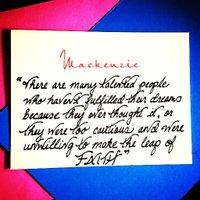 Mackenzie
"There are many talented people
who haven't fulfilled their dreams
because they over thought it, or
they were too cautious and were
unwilling to make the leap of
FAITH"